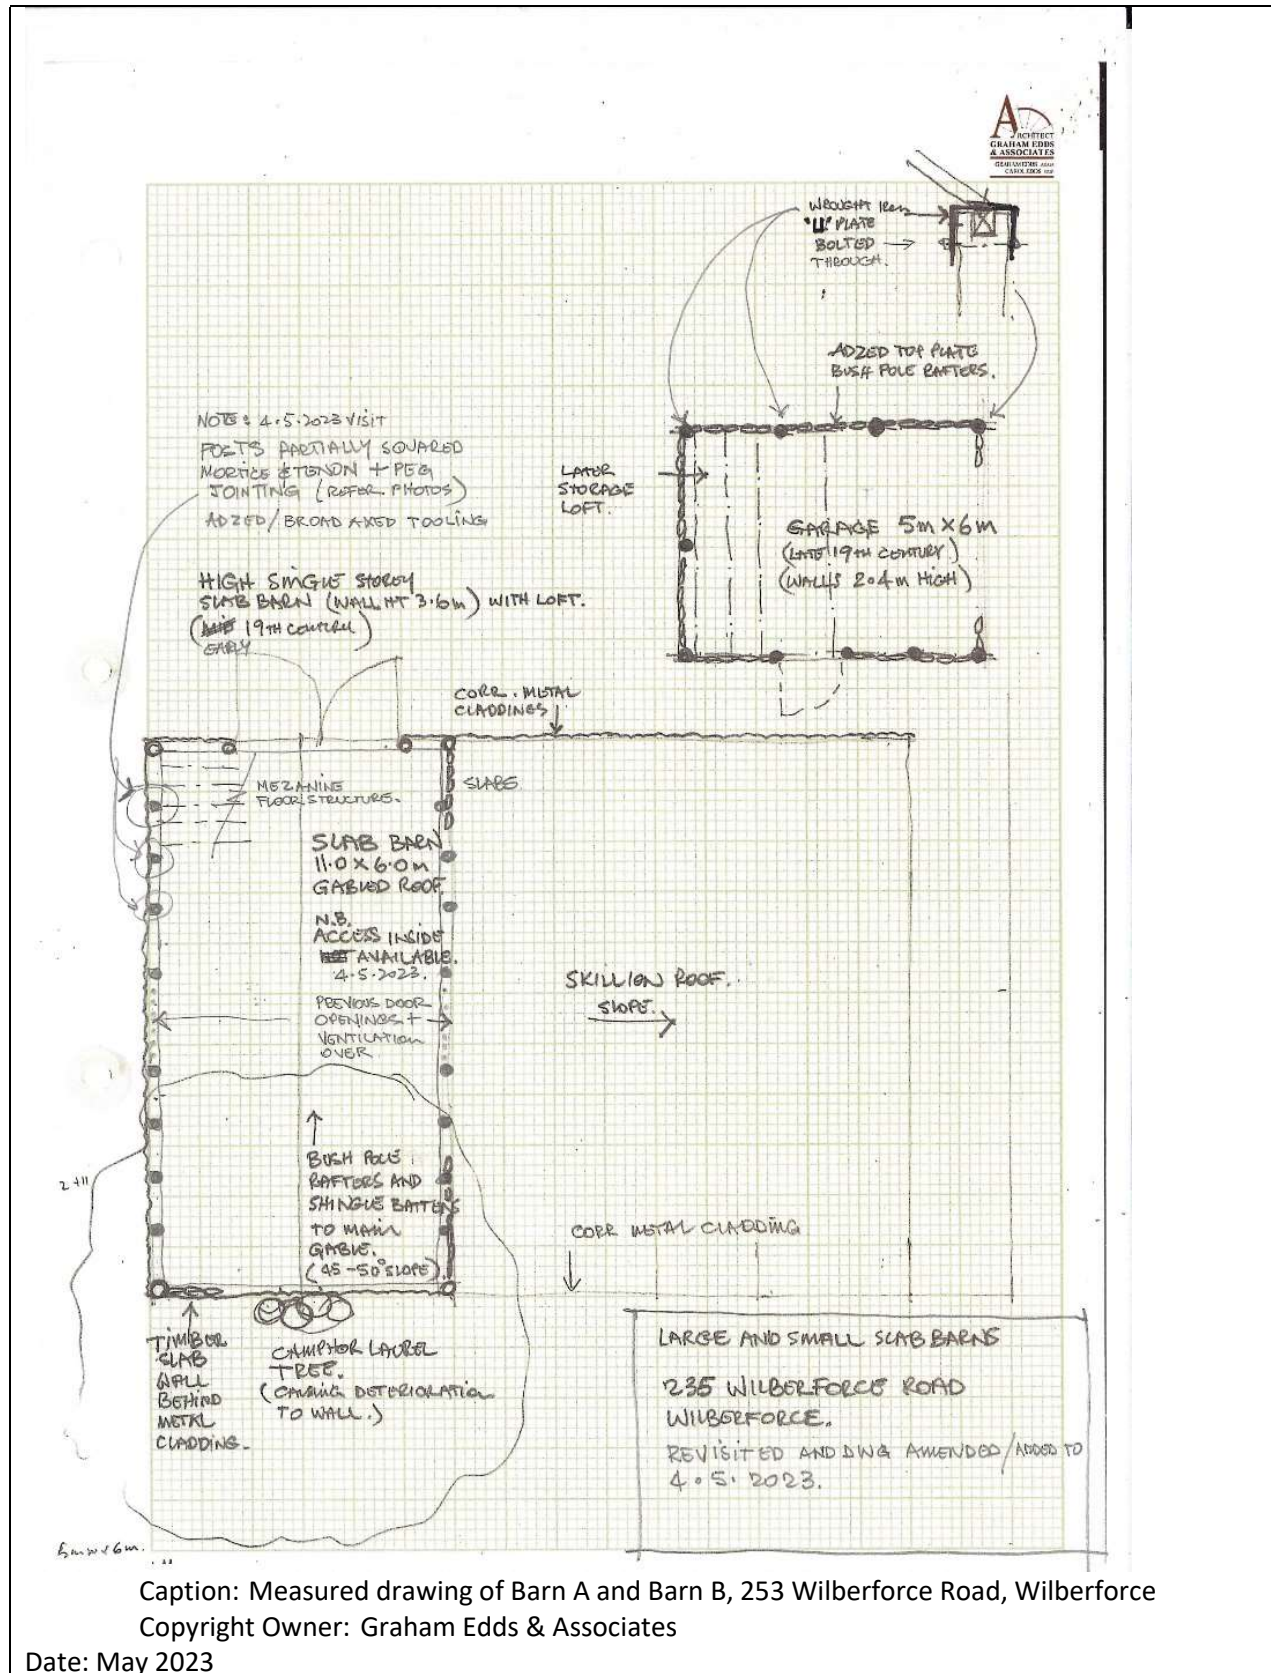 ARCHITECT
GRAHAM EDDS
& ASSOCIATES
GRAHAM EDDS
CAROL EDDS
WROUGHT IRON
"U" PLATE
BOLTED
THROUGH.
ADZED TOP PLATE
BUSH POLE RAFTERS.
NOTE: 4.5.2023 VISIT
POSTS PARTIALLY SQUARED
MORTICE & TENON + PEG
JOINTING (REFER. PHOTOS)
ADZED/BROAD AXED TOOLING
LATER
STORAGE
LOFT.
GARAGE 5m X 6m
(LATE 19TH CENTURY)
(WALLS 2.4m HIGH)
HIGH SINGLE STOREY
SLAB BARN (WALL HT 3.6m) WITH LOFT.
(MID 19TH CENTURY)
EARLY
CORR. METAL
CLADDINGS
MEZANINE
FLOOR STRUCTURE.
SLABS
SLAB BARN
11.0 X 6.0m
GABLED ROOF.
N.B.
ACCESS INSIDE
NOT AVAILABLE.
4.5.2023.
PREVIOUS DOOR
OPENINGS +
VENTILATION
OVER
SKILLION ROOF.
SLOPE.
BUSH POLE
RAFTERS AND
SHINGLE BATTENS
TO MAIN
GABLE.
(45-50° SLOPE)
CORR METAL CLADDING
TIMBER
SLAB
WALL
BEHIND
METAL
CLADDING.
CAMPHOR LAUREL
TREE.
(CAUSING DETERIORATION
TO WALL.)
LARGE AND SMALL SLAB BARNS
235 WILBERFORCE ROAD
WILBERFORCE.
REVISITED AND DWG AMENDED/ADDED TO
4.5.2023.
Caption: Measured drawing of Barn A and Barn B, 253 Wilberforce Road, Wilberforce
Copyright Owner: Graham Edds & Associates
Date: May 2023